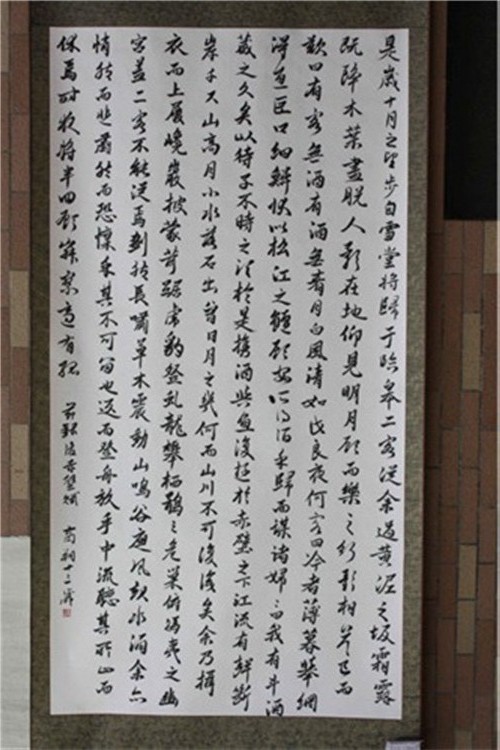 是歲十月之望步自雪堂將歸于臨皋二客從余過黃泥之坂霜露
既降木葉盡脫人影在地仰見明月顧而樂之行歌相答已而
歎曰有客無酒有酒無肴月白風清如此良夜何客曰今者薄暮舉網
得魚巨口細鱗狀似松江之鱸顧安所得酒乎歸而謀諸婦〻曰我有斗酒
藏之久矣以待子不時之須於是攜酒與魚復遊於赤壁之下江流有聲斷
岸千尺山高月小水落石出曾日月之幾何而山川不可復識矣余乃攝
衣而上履巉巖披蒙茸踞虎豹登虬龍攀棲鶻之危巢俯馮夷之幽
宮蓋二客不能從焉劃然長嘯草木震動山鳴谷應風起水涌余亦
悄然而悲肅然而恐凜乎其不可留也返而登舟放乎中流聽其所止而
休焉時夜將半四顧寂寥適有孤 後赤壁賦